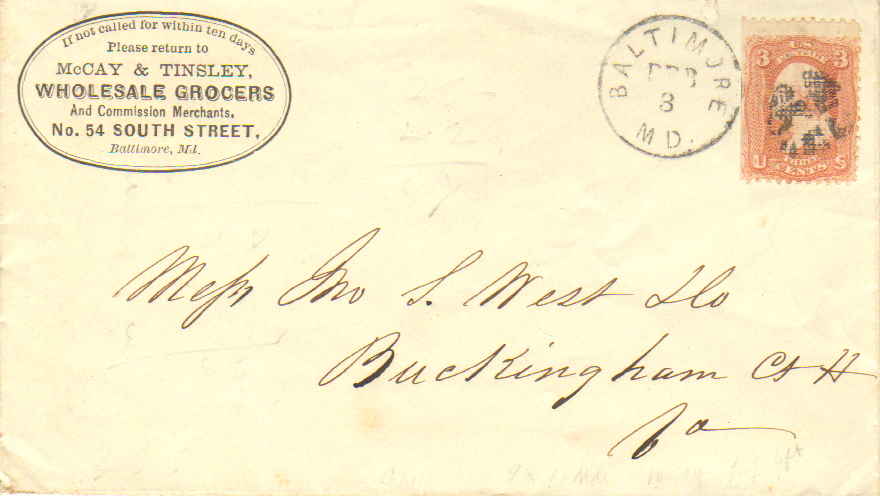 If not called for within ten days
Please return to
McCAY & TINSLEY,
WHOLESALE GROCERS
And Commission Merchants,
No. 54 SOUTH STREET,
Baltimore, Md.
BALTIMORE
FEB
3
MD.
3 U.S. 3
POSTAGE
U S
CENTS
Messrs Jno S. West & Co
Buckingham Ct H
Va